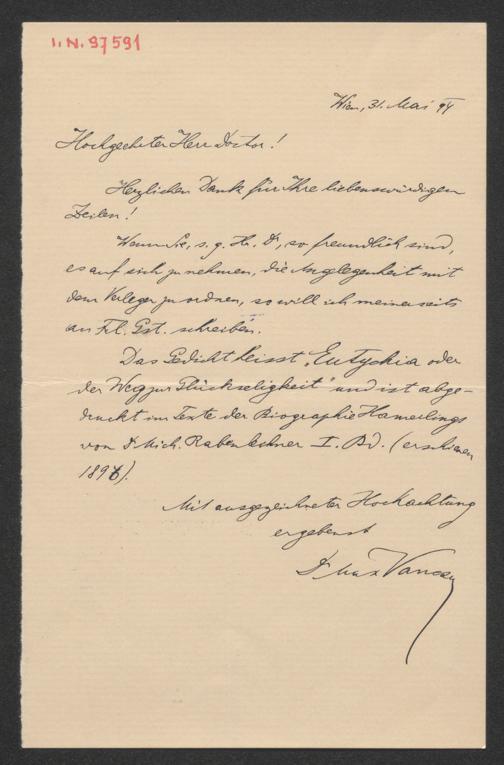 I. N. 97591
Wien, 31. Mai
Hochgeehrter Herr Doctor!
Herzlichen Dank für Ihre liebenswürdigen
Zeilen!
Wenn Sie, s. g. Hr. Dr, so freundlich sind,
es auf sich zu nehmen, die Angelegenheit mit
dem Verleger zu ordnen, so will ich meinerseits
an Frl. Gst. schreiben.
Das Gedicht heisst „Eutychia oder
der Weg zur Glückseligkeit" und ist abge-
druckt im Texte der Biographie Hamerlings
von Dr Mich. Rabenlechner I. Bd. (erschienen
1896).
Mit ausgezeichneter Hochachtung
ergebenst
Dr Max Vancsa